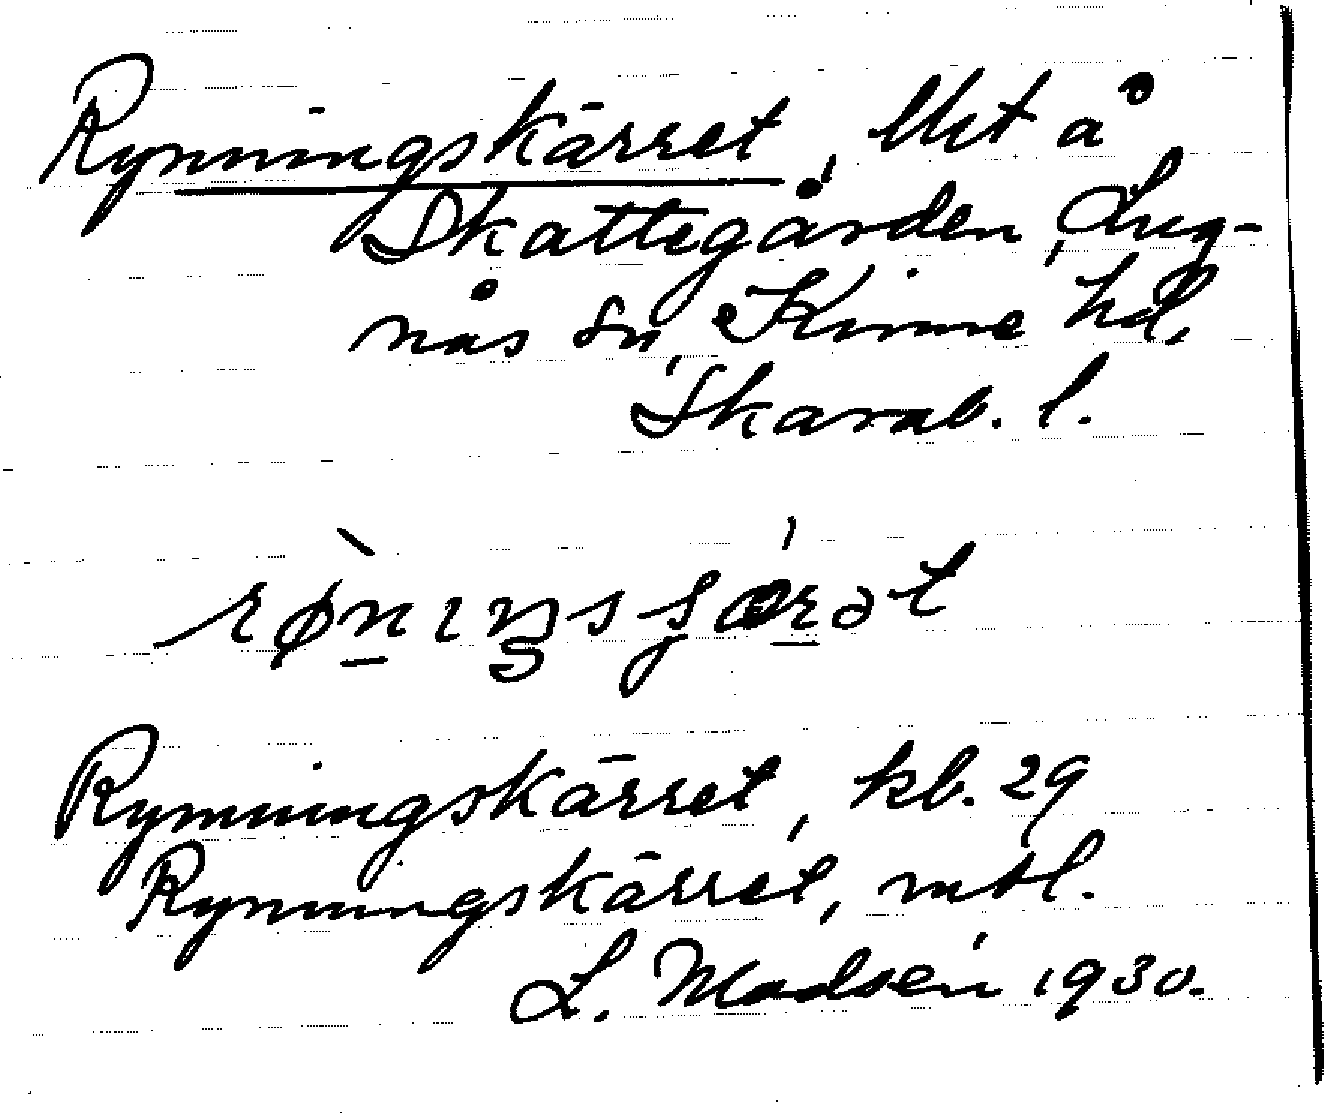 Rynningskärret, Ut å
Skattegården, Lug-
nås sn, Kinne hd,
Skarab. l.
Rynningskärret, kb. 29
Rynningskärret, mtl.
L. Madsén 1930.